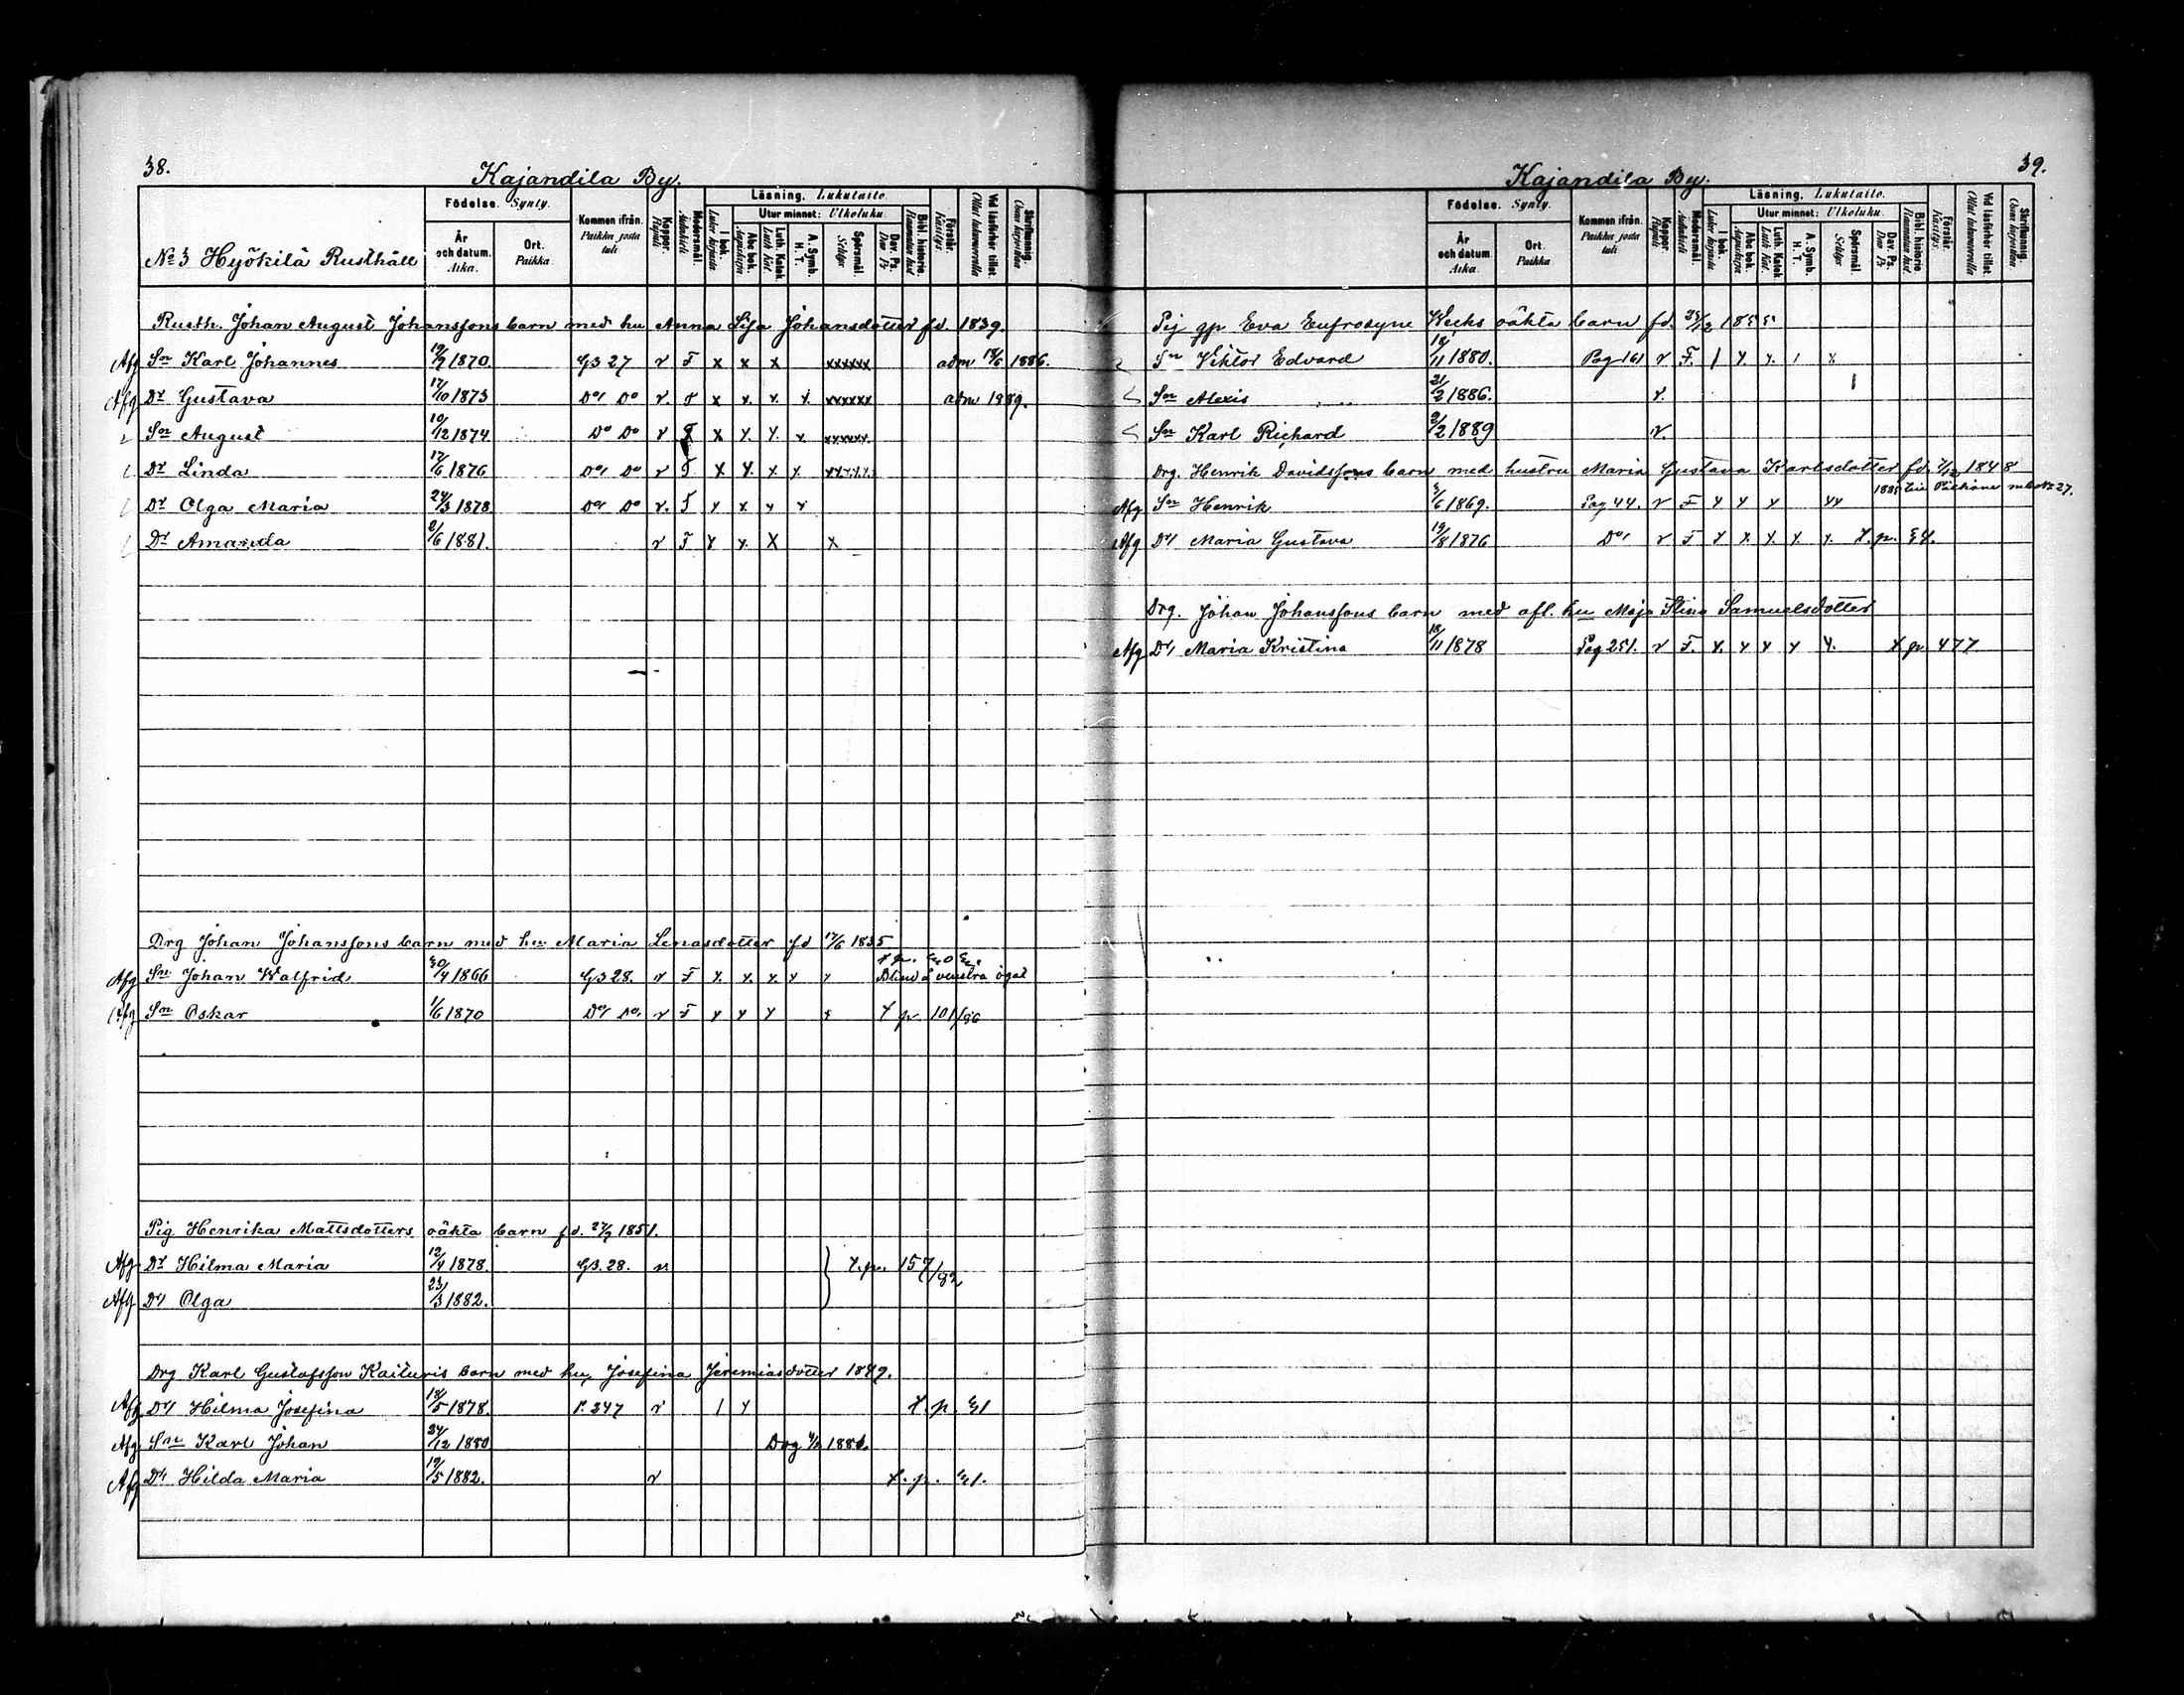 38.
Kajandila By.
Nº 3 Hyökilä Rusthåll
Födelse. Synty.
År och datum. Aika.
Ort. Paikka
Kommen ifrån. Paikka josta tuli
Koppor. Rupuli
Modersmål. Äidinkieli
Läsning. Lukutaito.
I bok. Lukee kirjasta
Utur minnet: Ulkoluku.
Abc bok. Aapiskirja
Luth. Katek. Luth. Kat.
A. Symb. H. T.
Spörsmål. Selitys
Dav. Ps. Dav. Ps
Bibl. historie.
Förstår. Käsitys.
Vid läsförhör tillst. Ollut lukuvuorolla
Skrifkunnig. Osaa kirjoittaa
Rusth. Johan August Johanssons barn med hu Anna Lisa Johansdotter fd. 1839.
Afg Sn Karl Johannes 19/9 1870. GB 27 v F x x x xxxxxx adm 18/6 1886.
Afg Dr Gustava 17/10 1873 Do Do v. F x x. x. x. xxxxxx adm 1889.
Sn August 10/12 1874 Do Do v F x x. x. x xxxxxx.
Dr Linda 17/6 1876 Do Do v F x x. x x. xxxxxx
Dr Olga Maria 24/3 1878 Do Do v. F x x x x
Dr Amanda 2/6 1881. v F x x. x x
Drg Johan Johanssons barn med hu Maria Lenasdotter fd 17/6 1835
Afg Sn Johan Walfrid 30/4 1866 GB 28. v F x. x. x. x x Blind å venstra ögat
Afg Sn Oskar 1/6 1870 Do Do. v F x x x x x p 101/86
Pig Henrika Mattsdotters oäkta barn fd. 27/9 1851.
Afg Dr Hilma Maria 12/4 1878. GB. 28. v } x. p. 157/82
Afg Dr Olga 23/3 1882.
Drg Karl Gustafsson Kaituris barn med hu Josefina Jeremiasdotter 1849.
Afg Dr Hilma Josefina 18/5 1878. P. 347 v / x x. p. 51
Afg Sn Karl Johan 24/12 1880 1881.
Afg Dr Hilda Maria 19/5 1882. v x. p. 51.
39.
Kajandila By.
Födelse. Synty.
År och datum. Aika.
Ort. Paikka
Kommen ifrån. Paikka josta tuli
Koppor. Rupuli
Modersmål. Äidinkieli
Läsning. Lukutaito.
I bok. Lukee kirjasta
Utur minnet: Ulkoluku.
Abc bok. Aapiskirja
Luth. Katek. Luth. Kat.
A. Symb. H. T.
Spörsmål. Selitys
Dav. Ps. Dav. Ps
Bibl. historie
Förstår. Käsitys.
Vid läsförhör tillst. Ollut lukuvuorolla
Skrifkunnig. Osaa kirjoittaa
Pig gp Eva Eufrosyne Wecks oäkta barn fd. 25/12 1855
Sn Viktor Edvard 18/11 1880. Pag 161 v F. / x x. / x
Sn Alexis 21/2 1886. v.
Sn Karl Richard 2/2 1889 v.
Drg. Henrik Davidssons barn med hustru Maria Gustava Karlsdotter fd. 7/12 1848
Afg Sn Henrik 3/6 1869. Pag 44. v F x x x xx
Afg Dr Maria Gustava 19/8 1876 Do v F x x. x. x. x. x. p. 54.
Drg. Johan Johanssons barn med afl. hu Maja Stina Samuelsdotter
Afg Dr Maria Kristina 18/11 1878 Pag 251. v F. x. x x x x. x p 477